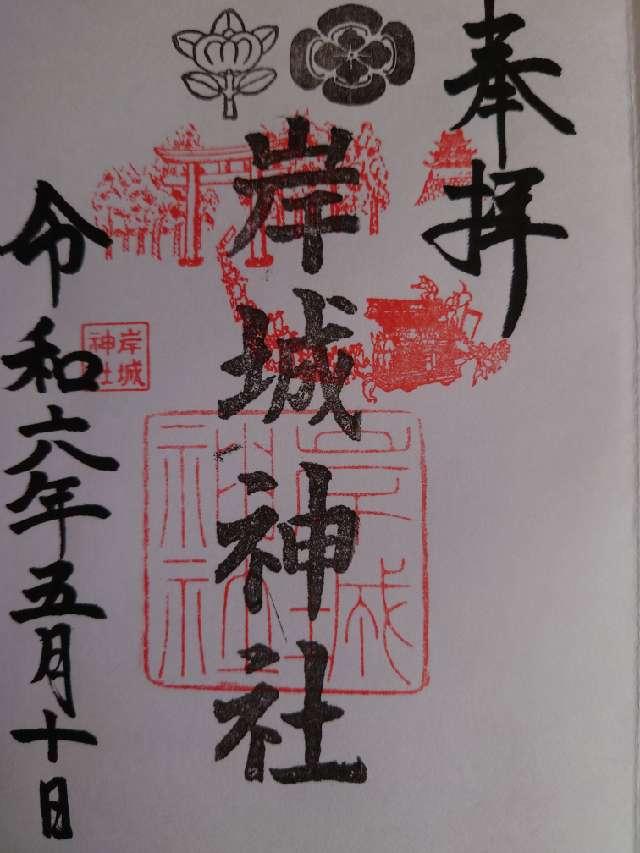 奉拝
岸城神社
岸城
神社
岸城
神社
令和六年五月十日